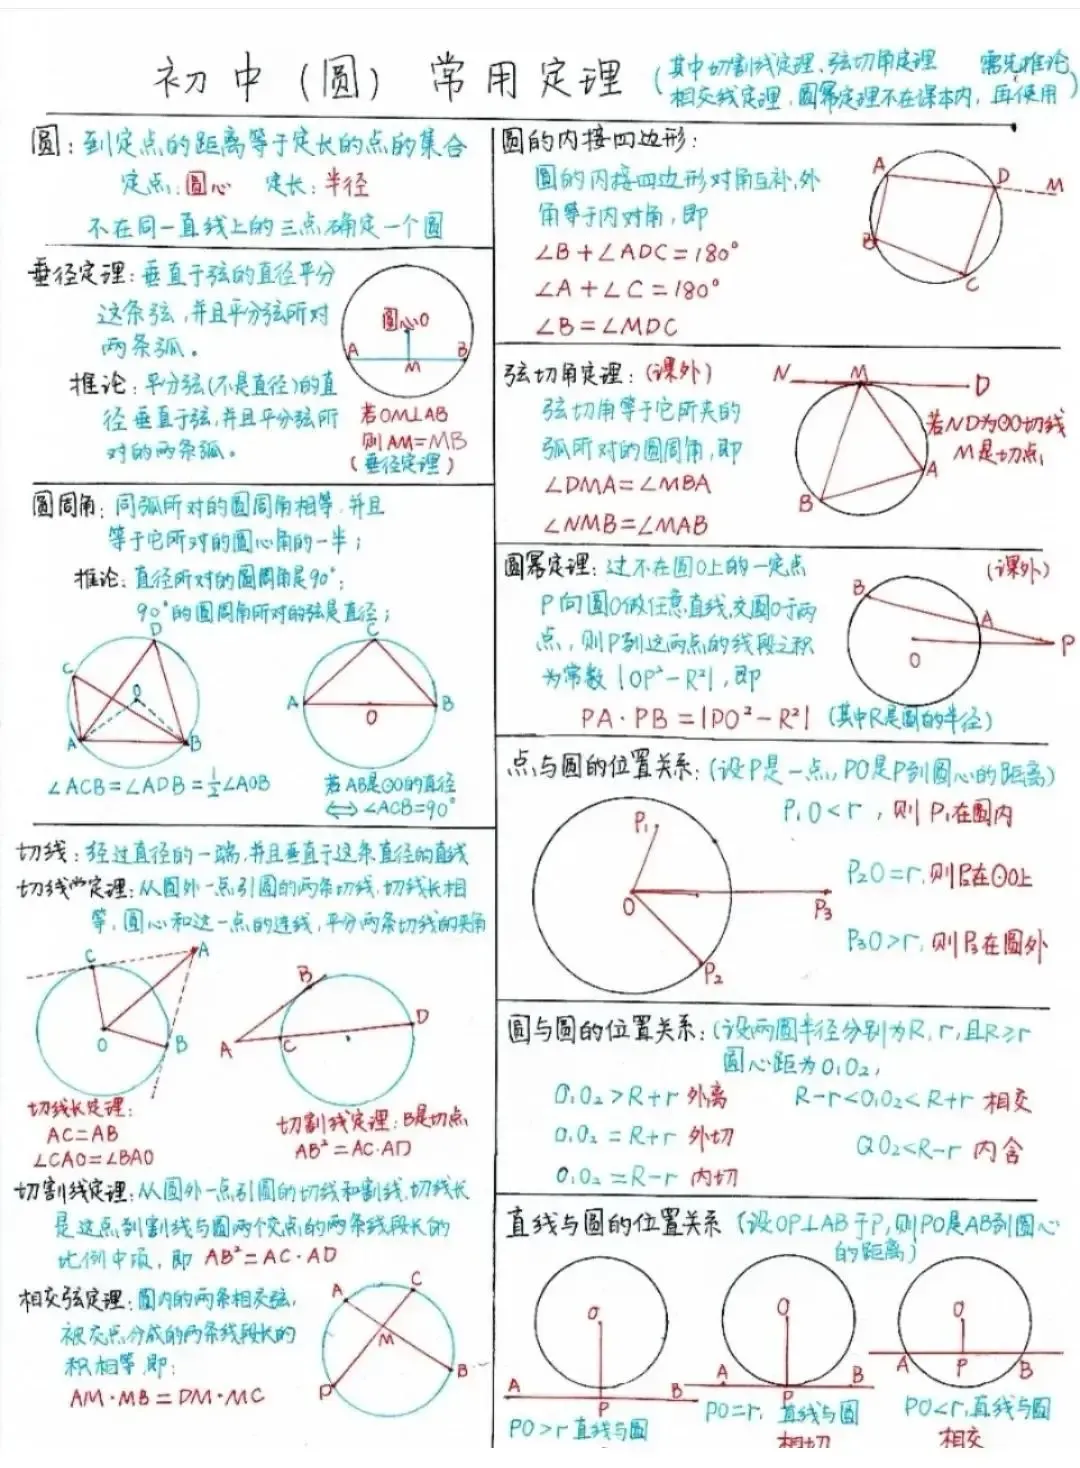 初中(圆)常用定理
(其中切割线定理、弦切角定理 需先推论
相交线定理,圆幂定理不在课本内,再使用)
圆:到定点的距离等于定长的点的集合
定点:圆心 定长:半径
不在同一直线上的三点确定一个圆
垂径定理:垂直于弦的直径平分
这条弦,并且平分弦所对
两条弧。
推论:平分弦(不是直径)的直
径垂直于弦,并且平分弦所
对的两条弧。
圆心O
A
M
B
若OM⊥AB
则AM=MB
(垂径定理)
圆周角:同弧所对的圆周角相等,并且
等于它所对的圆心角的一半;
推论:直径所对的圆周角是90°;
90°的圆周角所对的弦是直径;
D
C
O
A
B
C
A
O
B
∠ACB=∠ADB=½∠AOB
若AB是⊙O的直径
⟺∠ACB=90°
切线:经过直径的一端,并且垂直于这条直径的直线
切线长定理:从圆外一点引圆的两条切线,切线长相
等,圆心和这一点的连线,平分两条切线的夹角
C
A
O
B
B
A
C
D
切线长定理:
AC=AB
∠CAO=∠BAO
切割线定理:B是切点
AB²=AC·AD
切割线定理:从圆外一点引圆的切线和割线,切线长
是这点到割线与圆两个交点的两条线段长的
比例中项,即 AB²=AC·AD
相交弦定理:圆内的两条相交弦,
被交点分成的两条线段长的
积相等,即:
AM·MB=DM·MC
A
C
M
B
圆的内接四边形:
圆的内接四边形对角互补,外
角等于内对角,即
∠B+∠ADC=180°
∠A+∠C=180°
∠B=∠MDC
A
D
M
B
C
弦切角定理:(课外)
弦切角等于它所夹的
弧所对的圆周角,即
∠DMA=∠MBA
∠NMB=∠MAB
N
M
D
A
B
若ND为⊙O切线
M是切点
圆幂定理:过不在圆O上的一定点
(课外)
P向圆O做任意直线交圆O于两
点,则P到这两点的线段之积
为常数|OP²-R²|,即
PA·PB=|PO²-R²| (其中R是圆的半径)
B
A
P
O
点与圆的位置关系:(设P是一点,PO是P到圆心的距离)
P₁O<r,则P₁在圆内
P₂O=r,则P₂在⊙O上
P₃O>r,则P₃在圆外
P₁
O
P₃
P₂
圆与圆的位置关系:(设两圆半径分别为R,r,且R≥r
圆心距为O₁O₂,
O₁O₂>R+r 外离
R-r<O₁O₂<R+r 相交
O₁O₂=R+r 外切
O₁O₂<R-r 内含
O₁O₂=R-r 内切
直线与圆的位置关系(设OP⊥AB于P,则PO是AB到圆心
的距离)
O
A
P
B
O
A
P
B
O
A
P
B
PO>r直线与圆
PO=r,直线与圆
相切
PO<r,直线与圆
相交